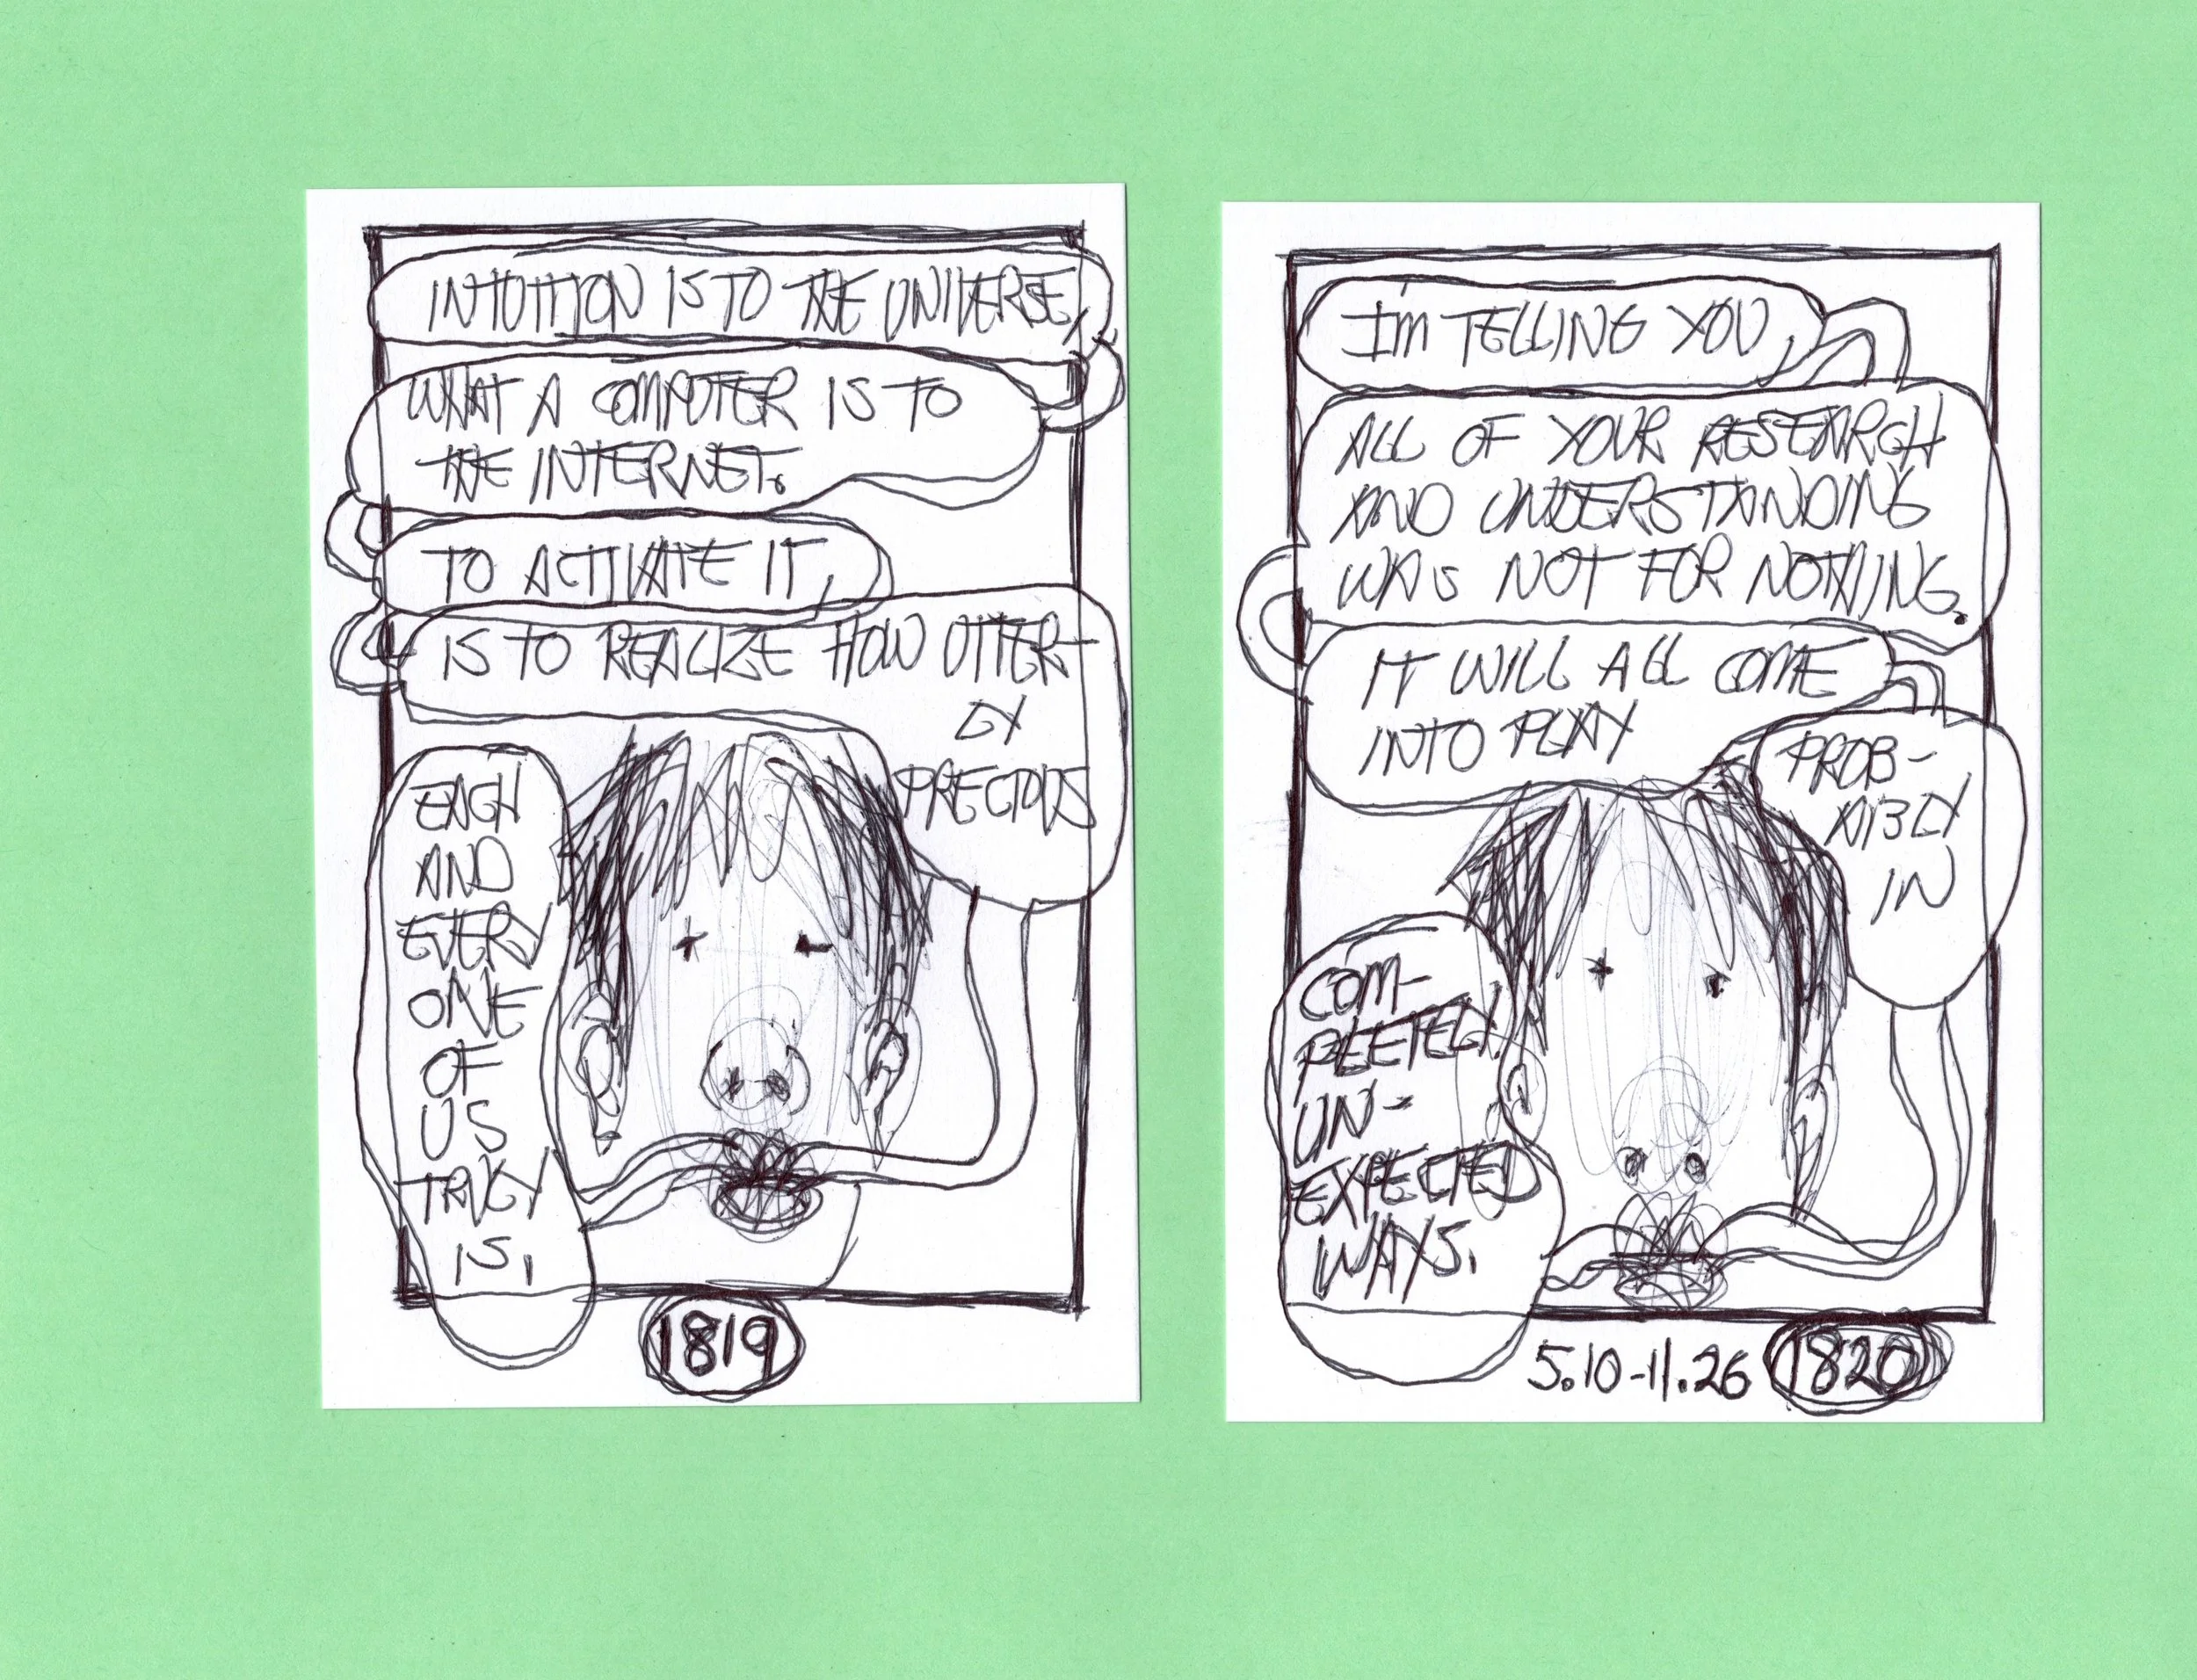 INTUITION IS TO THE UNIVERSE,
WHAT A COMPUTER IS TO
THE INTERNET.
TO ACTIVATE IT,
IS TO REALIZE HOW UTTER-
LY
PRECIOUS
EACH
AND
EVERY
ONE
OF
US
TRULY
IS.
1819
I'M TELLING YOU,
ALL OF YOUR RESEARCH
AND UNDERSTANDING
WAS NOT FOR NOTHING.
IT WILL ALL COME
INTO PLAY
PROB-
ABLY
IN
COM-
PLETELY
UN-
EXPECTED
WAYS.
5.10-11.26 1820